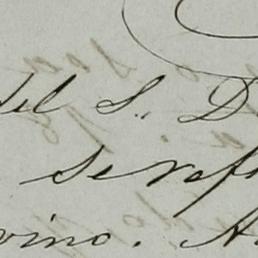 del S. D
seraf
vino. A